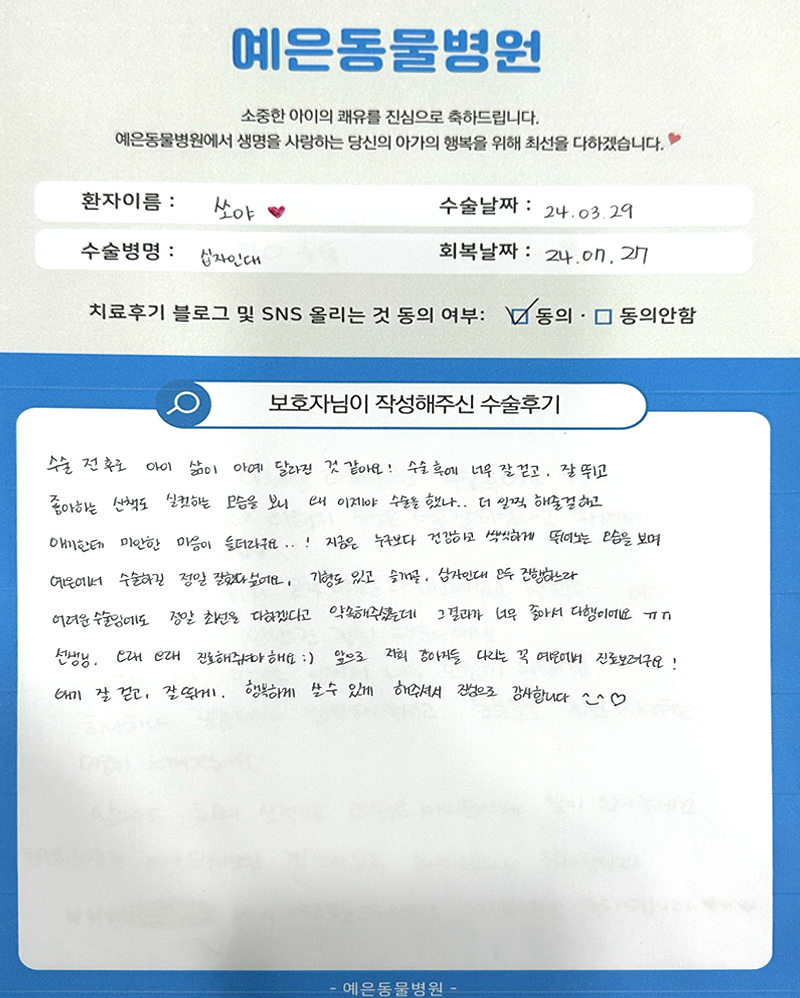 예은동물병원
소중한 아이의 쾌유를 진심으로 축하드립니다.
예은동물병원에서 생명을 사랑하는 당신의 아가의 행복을 위해 최선을 다하겠습니다.
환자이름 : 쏘야 수술날짜 : 24.03.29
수술병명 : 십자인대 회복날짜 : 24.07.27
치료후기 블로그 및 SNS 올리는 것 동의 여부: 동의 · 동의안함
보호자님이 작성해주신 수술후기
수술 전후로 아이 삶이 아예 달라진 것 같아요! 수술 후에 너무 잘 걷고, 잘 뛰고
좋아하는 산책도 실컷하는 모습을 보니 왜 이제야 수술을 했나.. 더 일찍 해줄걸 하고
애기한테 미안한 마음이 들더라구요..! 지금은 누구보다 건강하고 씩씩하게 뛰어노는 모습을 보며
예은에서 수술하길 정말 잘했다싶어요, 기형도 있고 슬개골, 십자인대 모두 진행하느라
어려운 수술임에도 정말 최선을 다하겠다고 약속해주셨는데 그결과가 너무 좋아서 다행이에요 ㅠㅠ
선생님, 오래 오래 진료해주셔야해요:) 앞으로 저희 강아지들 다리는 꼭 예은에서 진료보려구요!
애기 잘 걷고, 잘 뛰게, 행복하게 살 수 있게 해주셔서 진심으로 감사합니다 ^-^♡
- 예은동물병원 -